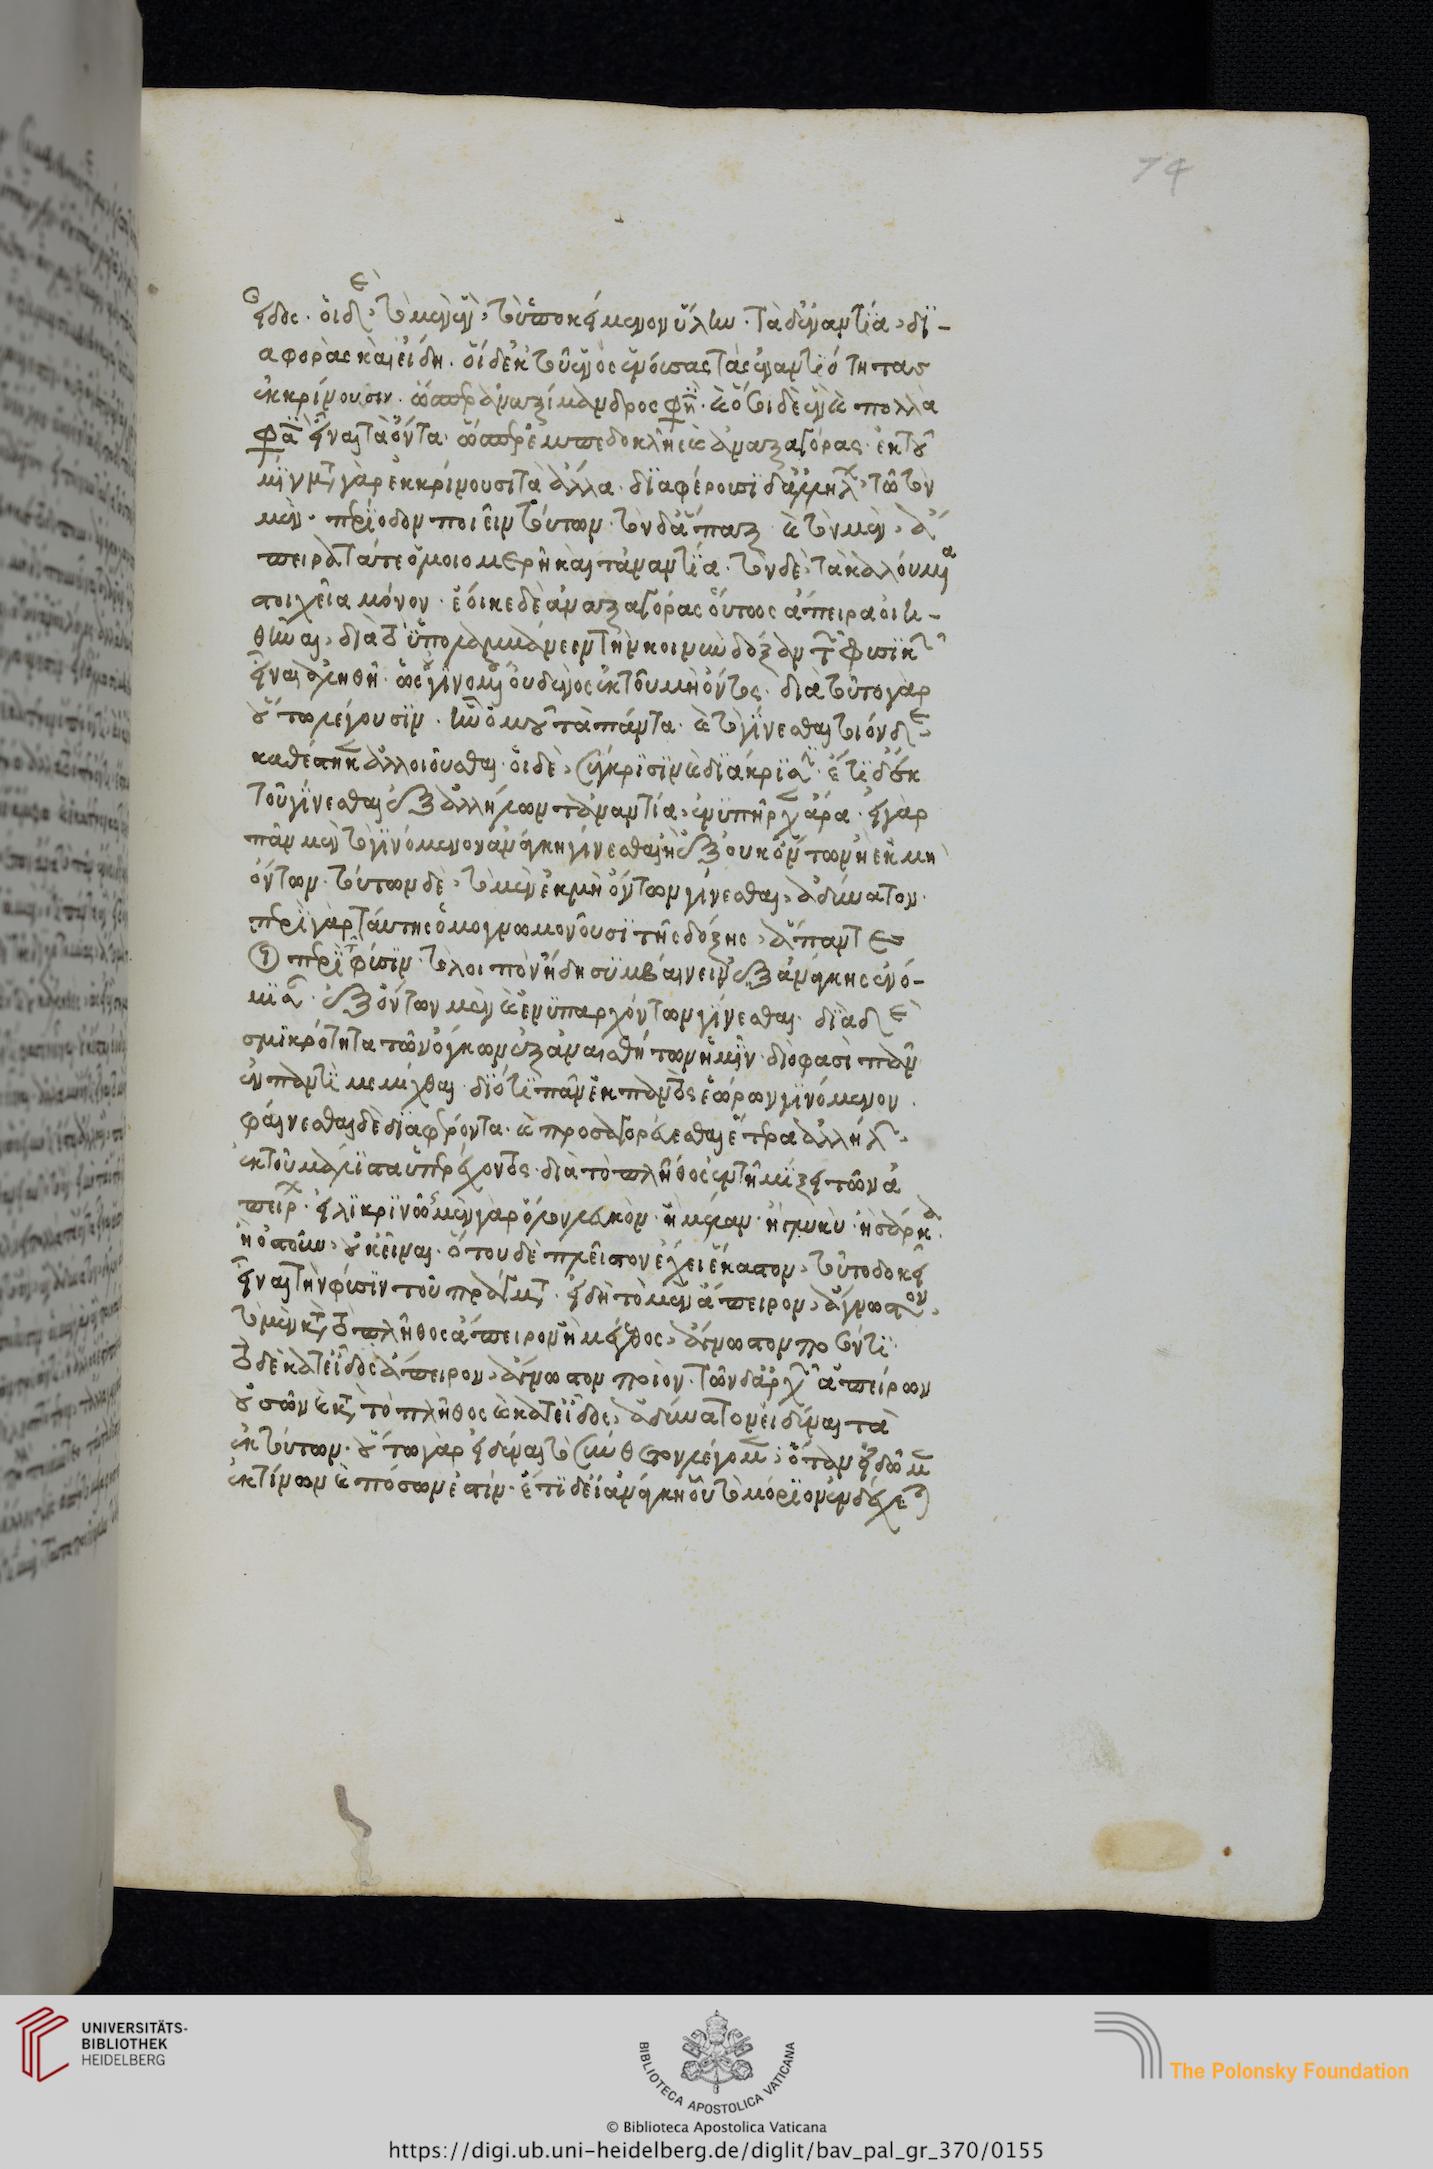 εἶδος· οἱ δὲ, τὸ μὲν ἓν, τὸ ὑποκείμενον ὕλην· τὰ δ' ἐναντία, δι-
αφορὰς καὶ εἴδη. οἱ δ' ἐκ τοῦ ἑνὸς ἐνούσας τὰς ἐναντιότητας
ἐκκρίνουσιν. ὥσπερ ἀναξίμανδρος φησὶ· καὶ ὅσοι δὲ ἓν καὶ πολλὰ
φασὶν εἶναι τὰ ὄντα· ὥσπερ ἐμπεδοκλῆς καὶ ἀναξαγόρας· ἐκ τοῦ
μίγματος γὰρ ἐκκρίνουσι τὰ ἄλλα· διαφέρουσι δ' ἀλλήλων, τῶ τὸν
μὲν· περίοδον ποιεῖν τούτων· τὸν δ' ἅπαξ· καὶ τὸν μὲν, ἄ
πειρα τά τε ὁμοιομερῆ καὶ τἀναντία· τὸν δὲ, τὰ καλούμενα
στοιχεῖα μόνον· ἔοικε δὲ ἀναξαγόρας οὕτως ἄπειρα οἰη-
θῆναι, διὰ τὸ ὑπολαμβάνειν τὴν κοινὴν δόξαν τῶν φυσικῶν
εἶναι ἀληθῆ· ὡς οὐ γινομένου οὐδενὸς ἐκ τοῦ μὴ ὄντος· διὰ τοῦτο γὰρ
οὕτω λέγουσιν· ἦν ὁμοῦ τὰ πάντα· καὶ τὸ γίνεσθαι τοιόνδε,
καθέστηκεν ἀλλοιοῦσθαι· οἱ δὲ, σύγκρισιν καὶ διάκρισιν· ἔτι δ' ἐκ
τοῦ γίνεσθαι ἐξ ἀλλήλων τἀναντία, ἐνυπῆρχεν ἄρα· εἰ γὰρ
πᾶν μὲν τὸ γινόμενον ἀνάγκη γίνεσθαι ἢ ἐξ οὐκ ὄντων ἢ ἐκ μὴ
ὄντων· τούτων δὲ, τὸ μὲν ἐκ μὴ ὄντων γίνεσθαι, ἀδύνατον·
περὶ γὰρ ταύτης ὁμογνωμονοῦσι τῆς δόξης, ἅπαντες
οἱ περὶ φύσιν· τὸ λοιπὸν ἤδη συμβαίνειν ἐξ ἀνάγκης ἐνό-
μισαν· ἐξ ὄντων μὲν καὶ ἐνυπαρχόντων γίνεσθαι· διὰ δὲ
σμικρότητα τῶν ὄγκων ἐξ ἀναισθήτων ἡμῖν· διό φασι πᾶν
ἐν παντὶ μεμίχθαι· διότι πᾶν ἐκ παντὸς ἑώρων γινόμενον.
φαίνεσθαι δὲ διαφέροντα· καὶ προσαγορεύεσθαι ἕτερα ἀλλήλων,
ἐκ τοῦ μάλιστα ὑπερέχοντος· διὰ τὸ πλῆθος ἐν τῆ μίξει τῶν ἀ
πείρων· εἰλικρινῶς μὲν γὰρ ὅλον λευκὸν· ἢ μέλαν· ἢ γλυκὺ· ἢ σάρκα·
ἢ ὀστοῦν, οὐκ εἶναι· ὅτου δὲ πλεῖστον ἔχει ἕκαστον, τοῦτο δοκεῖ
εἶναι τὴν φύσιν τοῦ πράγματος· εἰ δὴ τὸ μὲν ἄπειρον, ἄγνωστον,
τὸ μὲν κατὰ τὸ πλῆθος ἄπειρον ἢ μέγεθος, ἄγνωστον ποσόν τι·
τὸ δὲ κατ' εἶδος ἄπειρον, ἄγνωστον ποῖον· τῶν δ' ἀρχῶν ἀπείρων
οὐσῶν καὶ κατὰ τὸ πλῆθος καὶ κατ' εἶδος, ἀδύνατον εἰδέναι τὰ
ἐκ τούτων· οὕτω γὰρ εἰδέναι τὸ σύνθετον λέγομεν, ὅταν εἰδῶμεν
ἐκ τίνων καὶ πόσων ἐστίν· ἔτι δ' εἰ ἀνάγκη οὗ τὸ μόριον ἐνδέχεται
74
UNIVERSITÄTS-
BIBLIOTHEK
HEIDELBERG
BIBLIOTECA APOSTOLICA VATICANA
© Biblioteca Apostolica Vaticana
The Polonsky Foundation
https://digi.ub.uni-heidelberg.de/diglit/bav_pal_gr_370/0155